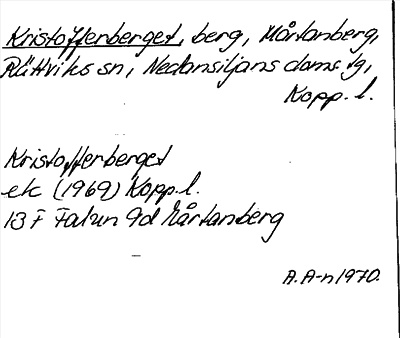 Kristofferberget, berg, Mårtanberg,
Rättviks sn, Nedansiljans doms. tg,
Kopp. l.
Kristofferberget
ek (1969) Kopp. l.
13 F Falun 9d Mårtanberg
A. A-n 1970.